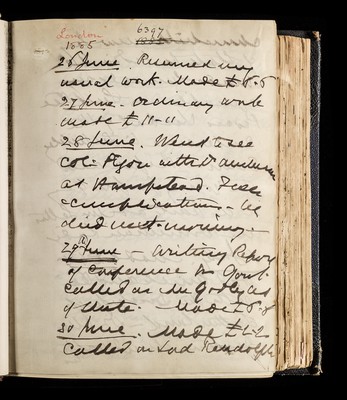 London
1885
6397
26 June. Resumed my
usual work. Made £ 8-8
27 June. Ordinary work
made £ 11-11
28 June. Went to see
Col: with Dr
at Hampstead.
complication - he
died next morning -
29th June - Writing Report
of Conference to Govt.
Called on
of State. Made £ 8-8
30 June. Made £ 2-2
Called on Lord Randolph